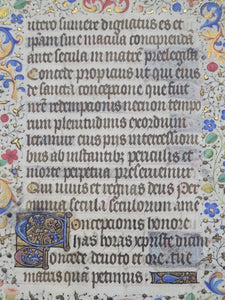 utero sumere dignatus es et
ipam sine macula concipiendo
ante secula in matre preelegisti
Concede propicius ut qui eius
de sancta concepcione que fuit
nre redempcionis necnon tempo
rum plenitudinis exordium
letamur eius pijs intercessioni
bus ab instantibus periculis et
morte perpetua preseruemur
Qui uiuis et regnas deus Per
omnia secula seculorum ame
Concepcionis honore
has horas xpriste dicam
concede deuoto et ore. sue
matris que petimus